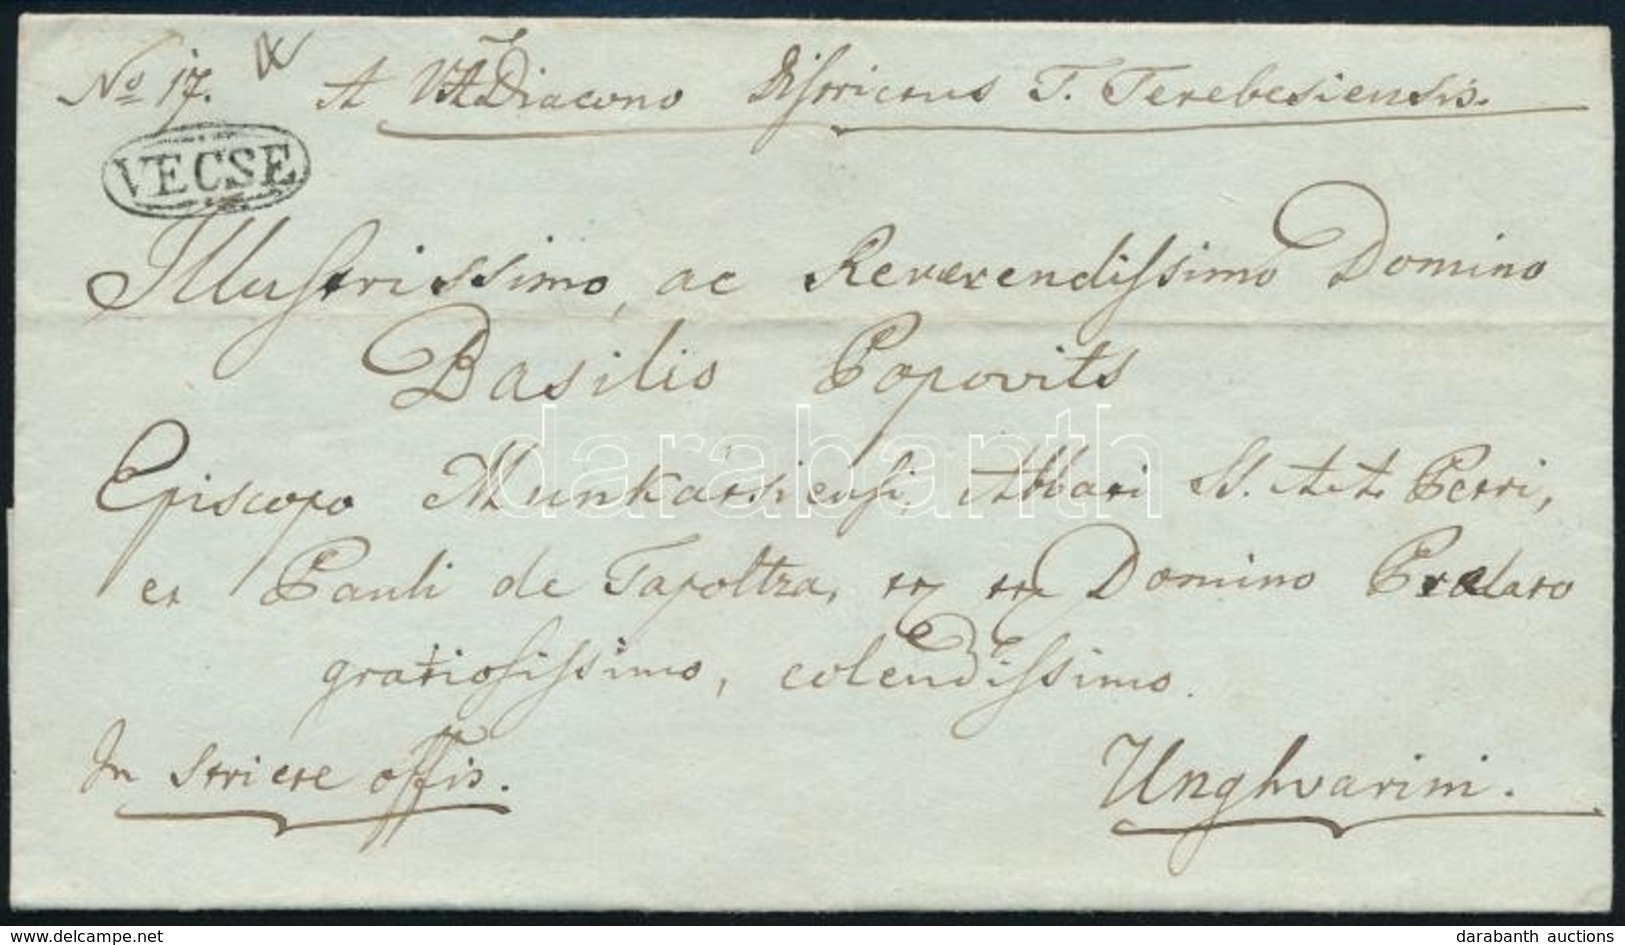 No 17. A V. A. Diacono Districtus T. Terebesiensis.
VECSE
Illustrissimo, ac Reverendissimo Domino
Basilio Popovits
Episcopo Munkátsiensi, Abbati SS. A. A. Petri,
et Pauli de Tapoltza, Domino Praelato
gratiosissimo, colendissimo.
In stricte offis.
Unghvarini.
darabanth
darabanth auctions